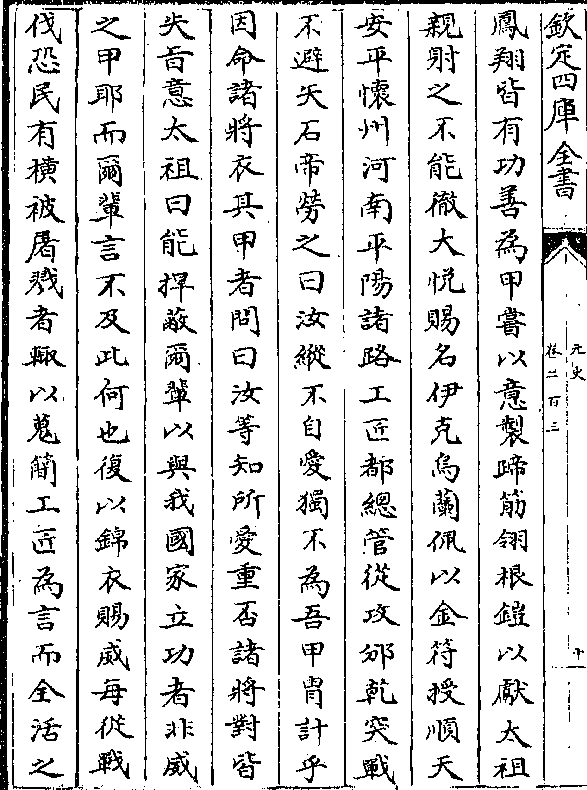 欽定四庫全書
元史
卷二百三
十
鳳翔皆有功善為甲嘗以意製蹄筋翎根鎧以獻太祖
親射之不能徹大悅賜名伊克烏蘭佩以金符授順天
安平懷州河南平陽諸路工匠都總管從攻邠乾突戰
不避矢石帝勞之曰汝縱不自愛獨不為吾甲胄計乎
因命諸將衣其甲者問曰汝等知所愛重否諸將對皆
失旨意太祖曰能捍蔽爾輩以與我國家立功者非威
之甲耶而爾輩言不及此何也復以錦衣賜威每從戰
伐恐民有横被屠戮者輙以蒐簡工匠為言而全活之